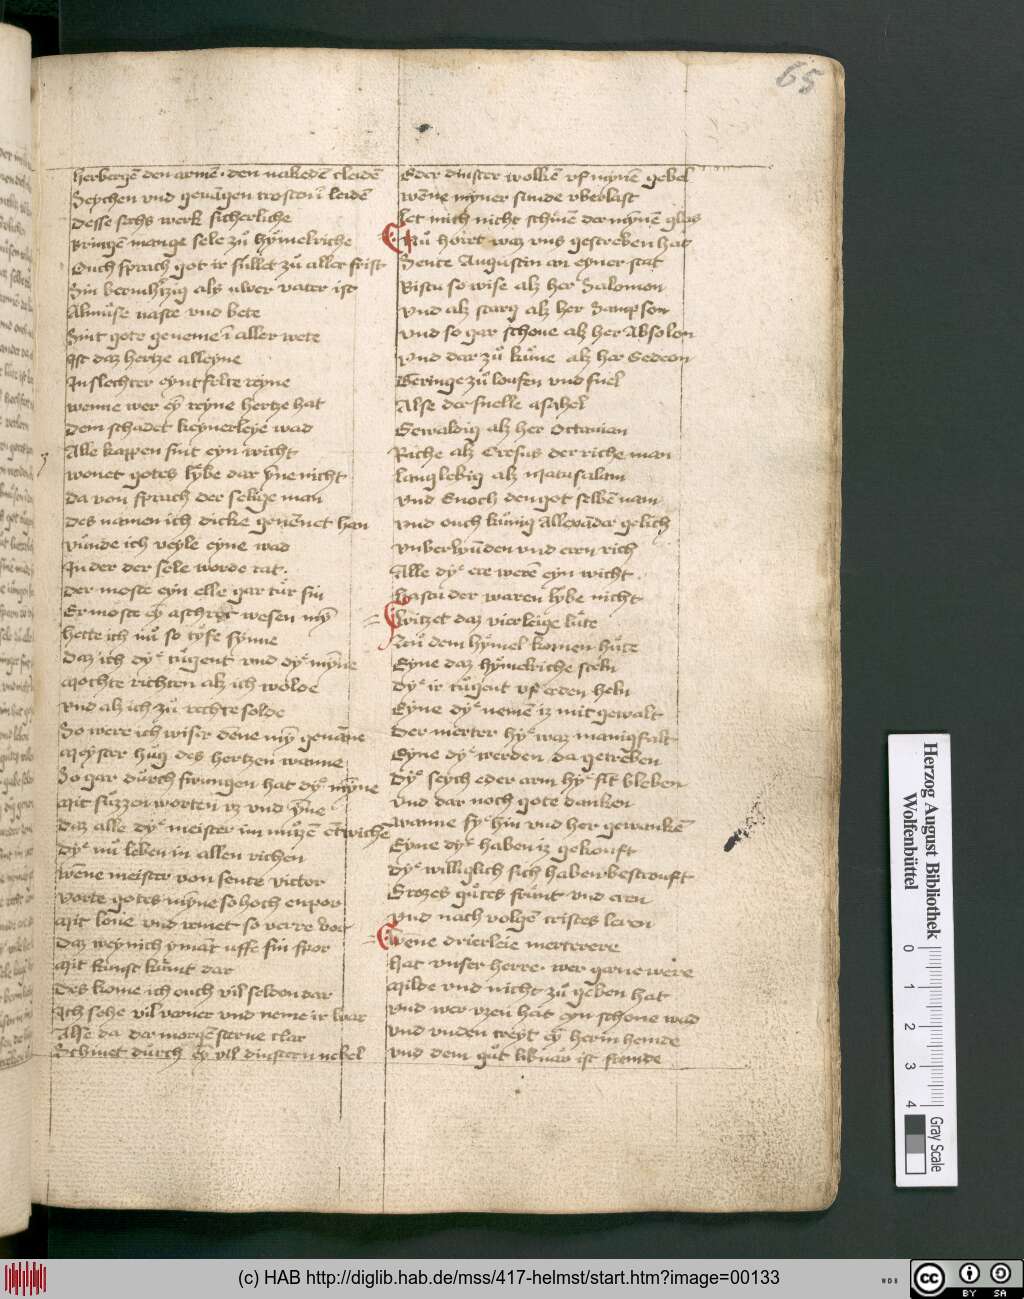 65
herbergē den armē · den nakedē cleidē
Seychen vnd gevāgen trosten ī leidē
Desse sechs werk sicherliche
Bringē mange sele zů hẏmelriche
Ouch sprach got ir sullet zů aller frist
Sin bermhtzig alz uwer vater ist
Almůse vaste vnd bete
Sint gote geneme ī aller wete
Ist daz hertze alleyne
In slechter eyntfelte reyne
wenne wer eȳ reyne hertze hat
Dem schadet keynerleye wad
Alle kappen sint eyn wicht
wonet gotes lybe dar ȳne nicht
Da von sprach der selige man
Des namen ich dicke genēnet han
vunde ich veyle eyne wad
In der der sele worde rat ·
Der moste eyn elle gar tur sin
Er moste eȳ ascher wesen mȳ
Hette ich nů so tyfe synne
Daz ich dyͤ tugent vnd dyͤ mynne
Mochte richten alz ich wolde
vnd alz ich zů rechte solde
So were ich wiser dēne mȳ genāne
Meyster hug des hertzen wanne
So gar durch swungen hat dyͤ mȳne
Mit suzzen worten vz vnd ȳne
Daz alle dyͤ meister im muzē ētwichē
Dyͤ nů leben in allen richen
wēne meister von sente victor
vorte gotes mȳne so hoch enpor
Mit loue vnd wuet so verre vor
Daz wey nich ymāt uffe sin spor
Mit kunst kumt dar
Des kome ich ouch vil selden dar
Ich sehe vil verner vnd neme ir war
Alse da der morgē sterne clar
Schinet durch eȳ vil dinstern nebel
Eder dinster wolkē vf mynē gebel
wēne myner sunde vberlast
Let mich nicht schinen der mynnē glas
Nů horet waz vns gescreben hat
Sente Augustin an eyner stat
Bistu so wise alz her Salomon
vnd alz starg alz her Sampson
vnd so gar schone alz her Absolon
vnd dar zů kune alz her Gedeon
Geringe zů loufen vnd snel
Alse der snelle asahel
Gewaldig alz her Octauian
Riche alz Cresus der riche man
lang lebig alz Matusalam
vnd Enoch den got selbē nam
vnd ouch kunig Allexāder gelich
vnberwunden vnd eren rich
Alle dyͤ ere werē eyn wicht
Hastu der waren lybe nicht
witzet daz vierleige lute
Zů dem hẏmel komen hute
Eyne daz hẏmelriche steln
Dyͤ ir tugent vf erden heln
Eyne dyͤ nemē iz mit gewalt
Der merter hyͤ waz manigfalt
Eyne dyͤ werden da getreben
Dyͤ seych eder arm hyͤ sīt bleben
vnd dar noch gote danken
wanne syͤ hin vnd her gewankē
Eyne dyͤ haben iz gekouft
Dyͤ williglich sich haben bestrouft
Grozes gutes frunt vnd eren
vnd nach volgē cristes leren
wene drierleie merterere
hat vnser herre · wer gerne were
Milde vnd nicht zů geben hat
vnd wer vzen hat an schone wad
vnd vnden treyt eȳ herin hemde
vnd dem gut bikuar ist fremde
Herzog August Bibliothek
Wolfenbüttel
0 1 2 3 4
Gray Scale
(c) HAB http://diglib.hab.de/mss/417-helmst/start.htm?image=00133
WDB
CC BY SA